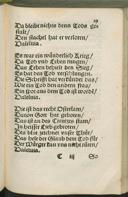 Da bleibt nichts denn Tods ge
stalt/
Den stachel hat er verloren/
Haleluia.
Es war ein wünderlich krieg/
Da Tod vnd Leben rungen/
Das Leben behielt den Sieg/
Es hat den Tod verschlungen.
Die Schrifft hat verkündet das/
Wie ein Tod den andern fras/
Ein spot aus dem Tod ist worden/
Haleluia.
Die ist das recht Osterlam/
Dauon Gott hat geboten/
Das ist an des Creutzes stam/
In heisser Lieb gebroten/
Das blut zeichnet vnser Thür/
Das helt der Glaub dem Tod für
Der Würger kan vns nicht
Haleluia.
C iij So